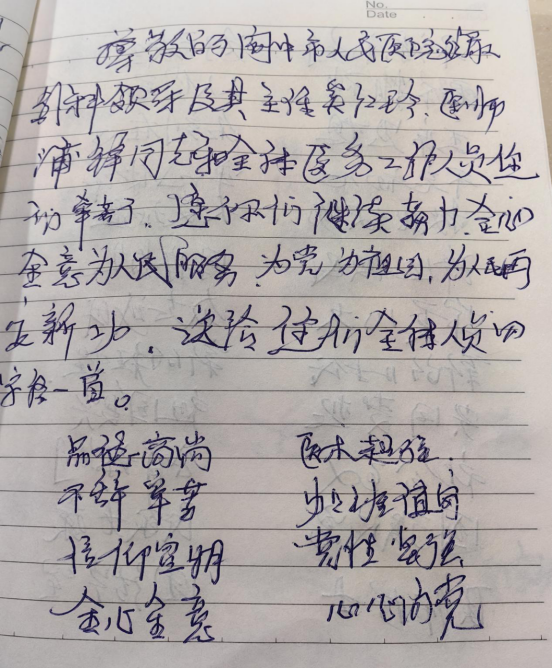 No.
Date
尊敬的阆中市人民医院
外科领导及其主任 医师
浦锋同志和全体医务工作人员您
们辛苦了.愿你们继续努力.全心
全意为人民服务.为党为祖国.为人民再
立新功.送给您们全体人员四
字格一首。
品德高尚 医术超强.
不辞辛苦 班值守
信仰宣明 党性坚强
全心全意 心心向党